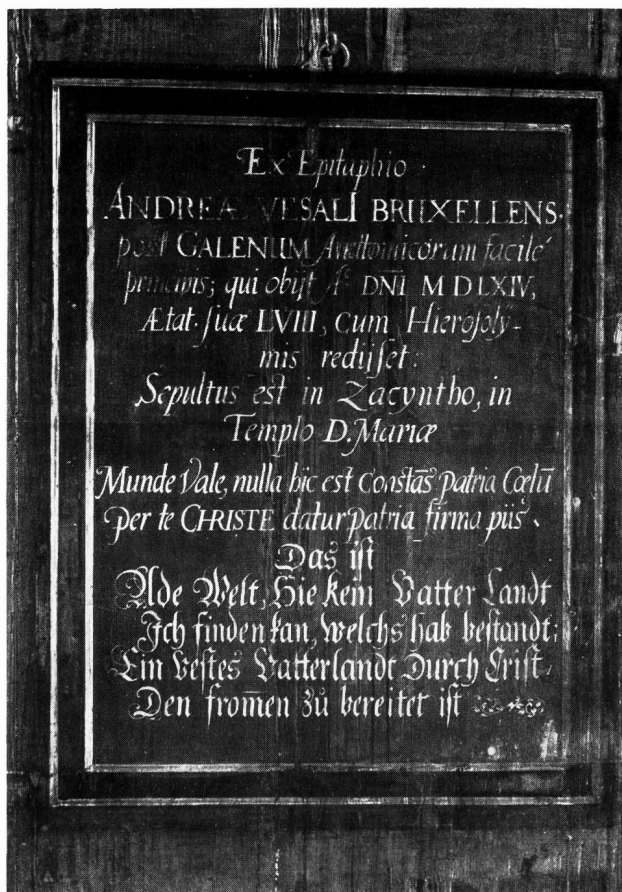 Ex Epitaphio
ANDREÆ VESALI BRUXELLENS.
post GALENUM Anattomicorum facile
principis; qui obijt Aº DNI M D LXIV,
Ætat. suæ LVIII, cum Hierosoly-
mis redijsset:
Sepultus est in Zacyntho, in
Templo D. Mariæ
Munde Vale, nulla hic est Constãs patria Cœlũ
per te CHRISTE datur patria firma piis.
Das ist
Ade Welt, Hie kein Vatter Landt
Ich finden kan, welchs hab bestandt;
Ein vestes Vatterlandt Durch Crist,
Den from̄en zů bereitet ist